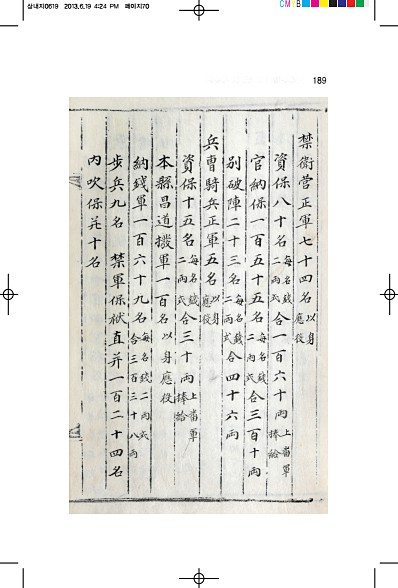 삼내지0619 2013.6.19 4:24 PM 페이지70
CMYB
189
禁衛營正軍七十四名 以身應役
資保八十名 每名錢二兩式 合一百六十兩 上番軍捧給
官納保一百五十五名 每名錢二兩式 合三百十兩
別破陣二十三名 每名錢二兩式 合四十六兩
兵曹騎兵正軍五名 以身應役
資保十五名 每名錢二兩式 合三十兩 上番軍捧給
本縣昌道撥軍一百名 以身應役
納錢軍一百六十九名 每名錢二兩式合三百三十八兩
步兵九名 禁軍保 直并一百二十四名
內吹保并十名